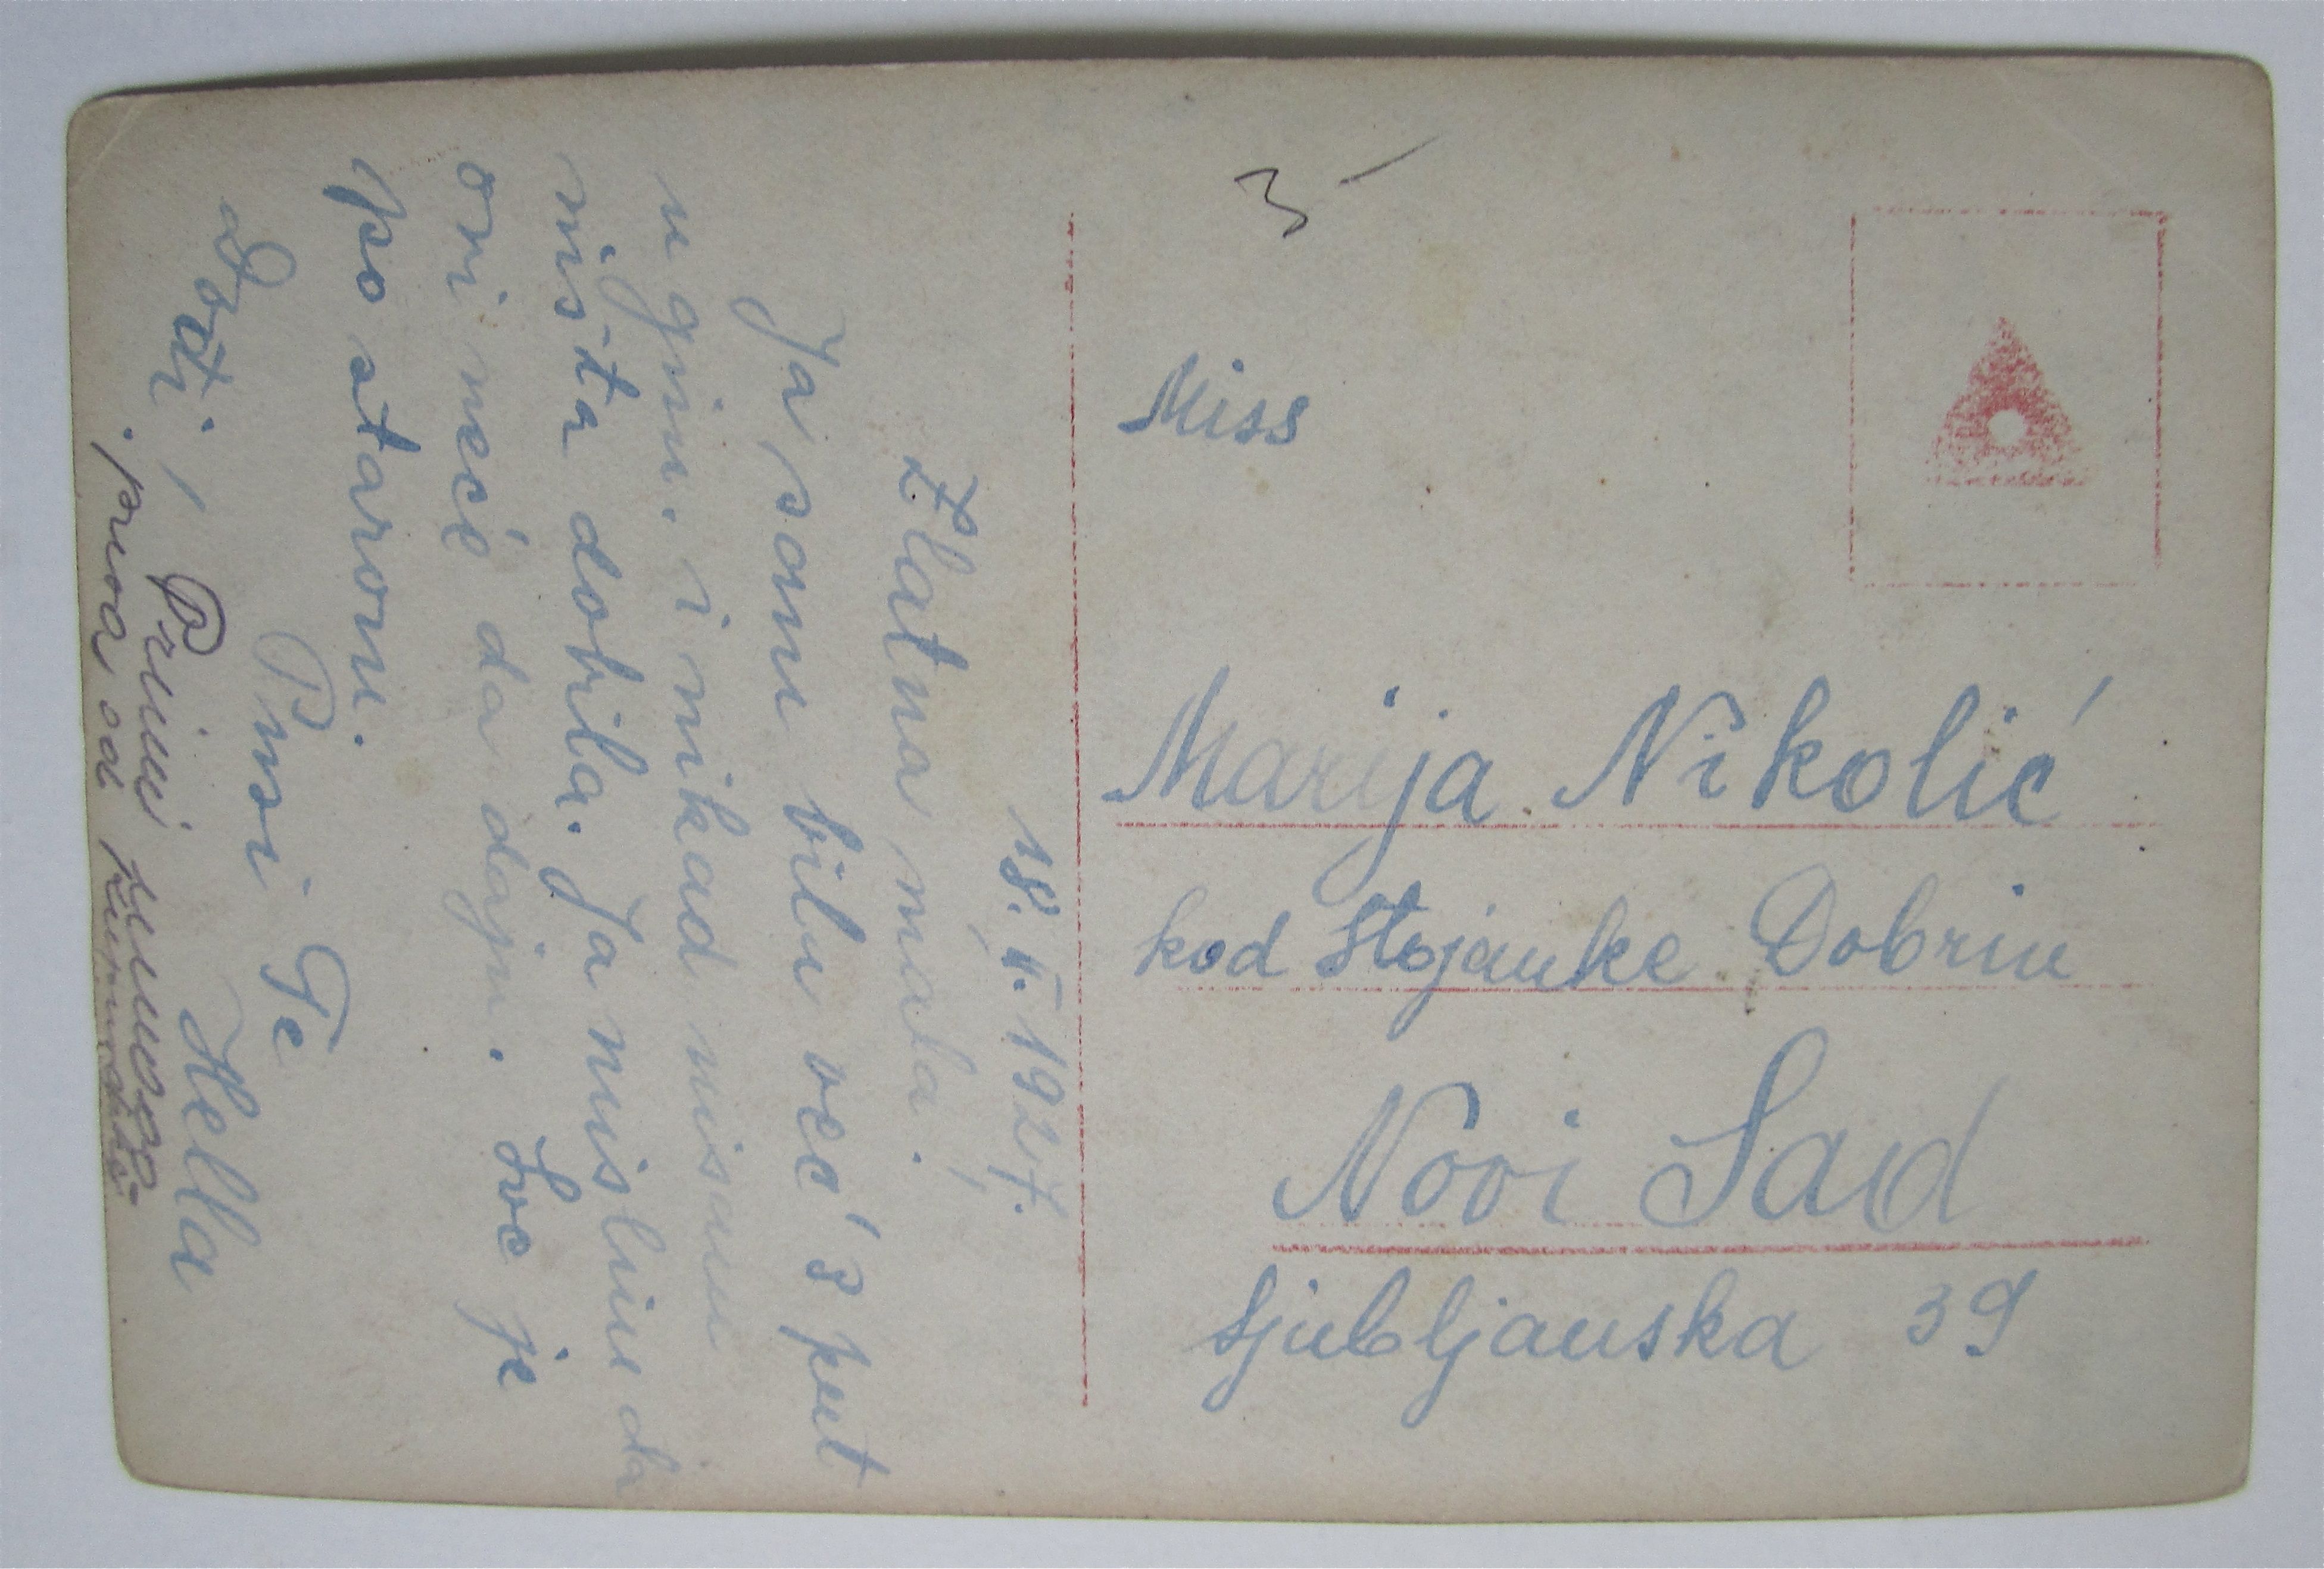 18. II. 1927.
Zlatna mala!
Ja sam bila već 3 put
u gim. i nikad nisam
ništa dobila. Ja mislim da
oni neće da daju. Sve je
po starom.
Piši Te
voli, Hella
Primi
prvoa od
5
Miss
Marija Nikolić
kod Stojanke Dobrin
Novi Sad
Ljubljanska 39